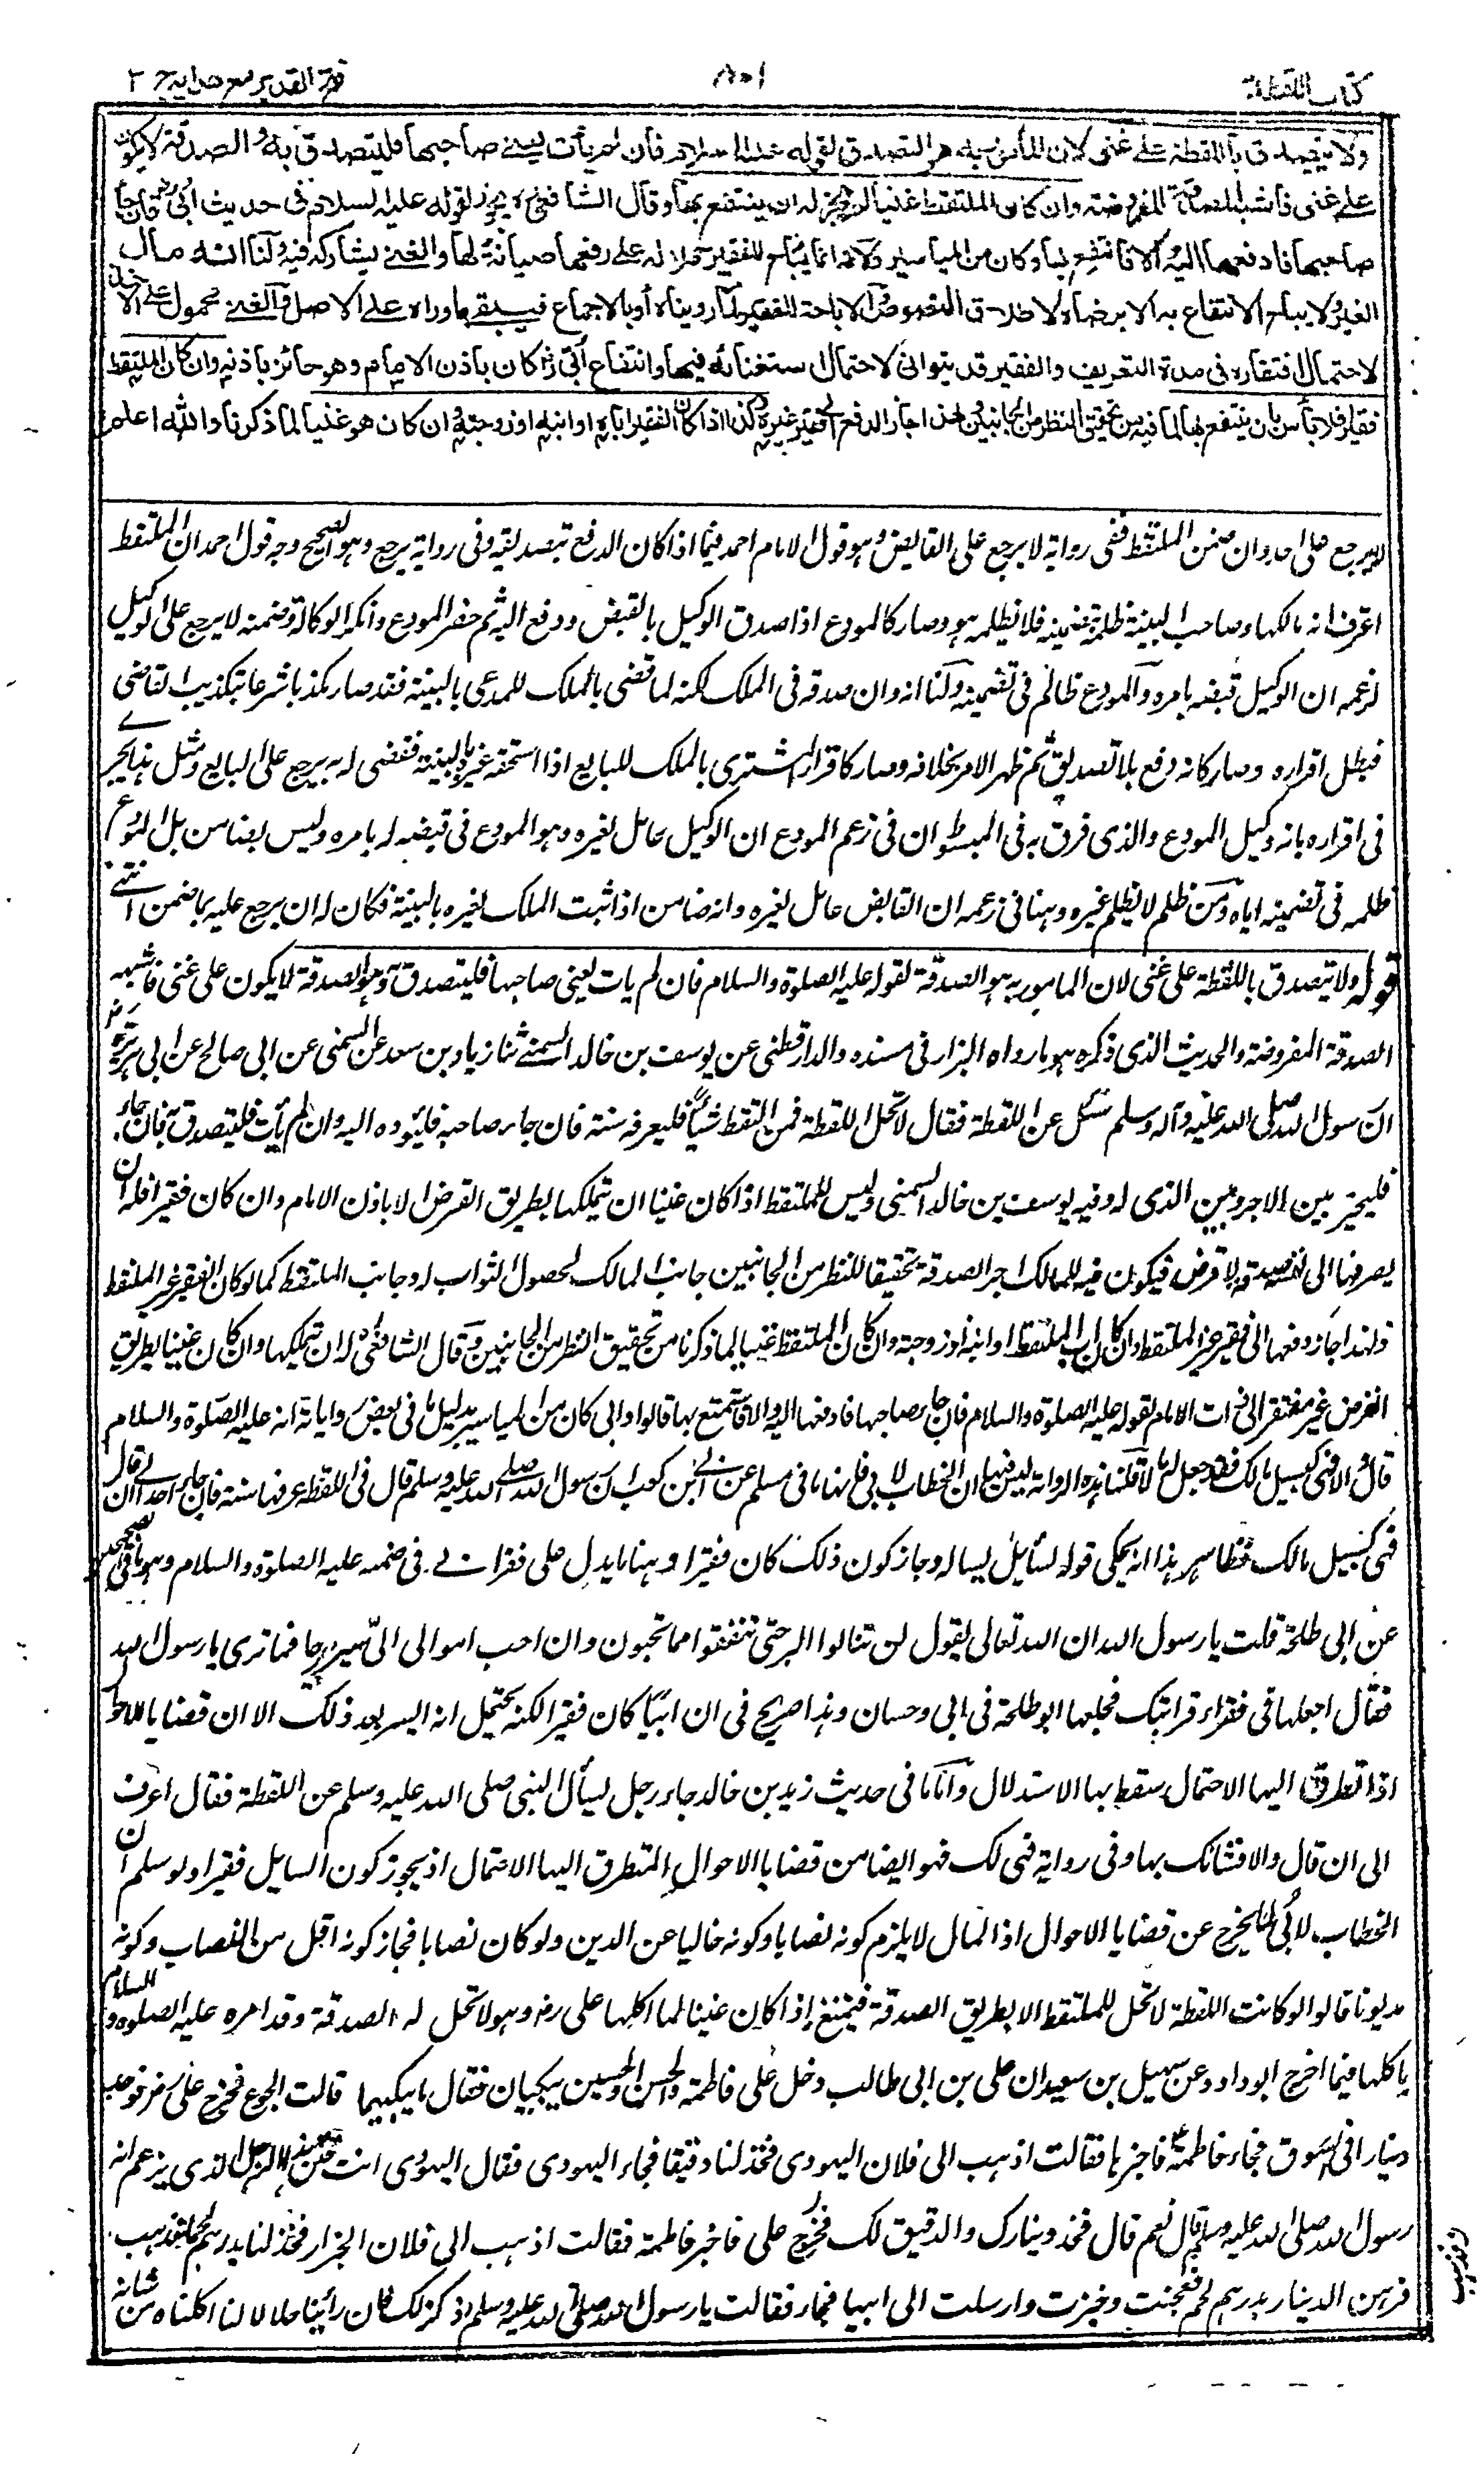 كتاب اللقطة
٨٠١
فتح القدير مع هدايه ج ٢
ولا يتصدق باللقطة على غنى لان المأمور به هو التصدق لقوله عليه السلام فان لم يأت يعنى صاحبها فليتصدق به والصدقة لا يكون
على غنى فاشبه الصدقة المفروضة وان كان الملتقط غنيا لم يجز له ان ينتفع بها وقال الشافعى يجوز لقوله عليه السلام فى حديث ابى رض فان جاء
صاحبها فادفعها اليه والا فانتفع بها وكان من المياسير ولانه انما يباح للفقير حملا له على رفعها صيانة لها والغنى يشاركه فيه ولنا انه مال
الغير ولا يباح الانتفاع به الا برضاه لاطلاق النصوص والاباحة للفقير لما رويناه او بالاجماع فيبقى ما وراه على الاصل والغنى محمول على الاخذ
لاحتمال افتقاره فى مدة التعريف والفقير قد يتوانى لاحتمال استغنائه فيها وانتفاع ابى رض كان باذن الامام وهو جائز باذنه وان كان الملتقط
فقيرا فلا بأس بان ينتفع بها لما فيه من تحقيق النظر من الجانبين ولهذا جاز الدفع الى فقير غيره وكذا اذا كان الفقير اباه او ابنه او زوجته وان كان هو غنيا لما ذكرنا والله اعلم
لا يرجع على احد وان ضمن الملتقط ففى رواية لا يرجع على القابض وهو قول الامام احمد فيما اذا كان الدفع بتصديقه وفى رواية يرجع وهو الصحيح وجه قول احمد ان الملتقط
اعترف انه مالكها وصاحب البينة ظلمه بتضمينه فلا يظلمه هو وصار كالمودع اذا صدق الوكيل بالقبض ودفع اليه ثم حضر المودع وانكر الوكالة وضمنه لا يرجع على الوكيل
لزعمه ان الوكيل قبضه بامره والمودع ظالم فى تضمينه ولنا انه وان صدقه فى الملك لكنه لما قضى بالملك للمدعى بالبينة فقد صار مكذبا شرعا بتكذيب القاضى
فبطل اقراره وصار كانه دفع بلا تصديق ثم ظهر الامر بخلافه وصار كاقرار المشترى بالملك للبايع اذا استحقه غيره بالبينة فقضى له به يرجع على البايع ومثل هذا يجرى
فى اقراره بانه وكيل المودع والذى فرق به فى المبسوط ان فى زعم المودع ان الوكيل عامل لغيره وهو المودع فى قبضه له بامره وليس بضامن بل المودع
ظلمه فى تضمينه اياه ومن ظلم لا يظلم غيره وهنا فى زعمه ان القابض عامل لغيره وانه ضامن اذا ثبت الملك لغيره بالبينة فكان له ان يرجع عليه بما ضمن انتهى
قوله ولا يتصدق باللقطة على غنى لان المامور به هو الصدقة لقوله عليه الصلوة والسلام فان لم يات يعنى صاحبها فليتصدق به والصدقة لا يكون على غنى فاشبه
الصدقة المفروضة والحديث الذى ذكره هو ما رواه البزار فى مسنده والدارقطنى عن يوسف بن خالد السمنى ثنا زياد بن سعد عن السمنى عن ابى صالح عن ابى هريرة رض
ان رسول الله صلى الله عليه وآله وسلم سئل عن اللقطة فقال لا تحل اللقطة فمن التقط شيأ فليعرفه سنة فان جاء صاحبه فليؤده اليه وان لم يأت فليتصدق به فان جاء
فليخير بين الاجر وبين الذى له وفيه يوسف بن خالد السمنى وليس للملتقط اذا كان غنيا ان يتملكها بطريق القرض الا باذن الامام وان كان فقيرا فله ان
يصرفها الى نفسه صدقة لا قرض فيكون فيه للمالك اجر الصدقة تحقيقا للنظر من الجانبين جانب المالك لحصول الثواب له وجانب الملتقط كما لو كان الفقير غير الملتقط
ولهذا جاز دفعها الى فقير غير الملتقط وان كان اب الملتقط او ابنه او زوجته وان كان الملتقط غنيا لما ذكرنا من تحقيق النظر من الجانبين وقال الشافعى له ان يتملكها وان كان غنيا بطريق
القرض غير مفتقر الى اذن الامام لقوله عليه الصلوة والسلام فان جاء صاحبها فادفعها اليه والا فاستمتع بها قالوا وابى كان من المياسير بدليل ما فى بعض رواياته انه عليه الصلوة والسلام
قال والا فهى كسبيل مالك فقد جعل له ما لا قلنا هذه الرواية ليس فيها ان الخطاب لابى فانها ما فى مسلم عن ابى بن كعب ان رسول الله صلى الله عليه وسلم قال فى اللقطة عرفها سنة فان جاء احد الى ان قال
فهى كسبيل مالك فظاهر هذا انه يحكى قوله لسائل يساله وجاز كون ذلك كان فقيرا وهنا ما يدل على فقر ابى فى ضمنه عليه الصلوة والسلام وهو ما فى الصحيحين
عن ابى طلحة قلت يا رسول الله ان الله تعالى يقول لن تنالوا البر حتى تنفقوا مما تحبون وان احب اموالى الى بيرحا فما ترى يا رسول الله
فقال اجعلها فى فقراء قرابتك فجعلها ابو طلحة فى ابى وحسان وهذا صريح فى ان ابيا كان فقيرا لكنه يحتمل انه ايسر بعد ذلك الا ان قضايا الاحوال
اذا تطرق اليها الاحتمال سقط بها الاستدلال واما ما فى حديث زيد بن خالد جاء رجل يسأل النبى صلى الله عليه وسلم عن اللقطة فقال اعرف
الى ان قال والا فشانك بها وفى رواية فهى لك فهو ايضا من قضايا الاحوال المتطرق اليها الاحتمال اذ يجوز كون السايل فقيرا ولو سلم ان
الخطاب لابى لم يخرج عن قضايا الاحوال اذ المال لا يلزم كونه نصابا وكونه خاليا عن الدين ولو كان نصابا فجاز كونه اقل من النصاب وكونه
مديونا قالوا لو كانت اللقطة لا تحل للملتقط الا بطريق الصدقة فيمتنع اذا كان غنيا لما اكلها على رض وهو لا تحل له الصدقة وقد امره عليه الصلوة والسلام
باكلها فيما اخرج ابو داود عن سهيل بن سعيد ان على بن ابى طالب دخل على فاطمة والحسن والحسين يبكيان فقال ما يبكيهما قالت الجوع فخرج على رض فوجد
دينارا فى السوق فجاء فاطمة فاخبرها فقالت اذهب الى فلان اليهودى فخذ لنا دقيقا فجاء اليهودى فقال اليهودى انت ختن هذا الرجل الذى يزعم انه
رسول الله صلى الله عليه وسلم قال نعم قال فخذ دينارك والدقيق لك فخرج على فاخبر فاطمة فقالت اذهب الى فلان الجزار فخذ لنا بدرهم لحما فذهب
فرهن الدينار بدرهم لحم فعجنت وخبزت وارسلت الى ابيها فجاء فقالت يا رسول الله صلى الله عليه وسلم اذكر لك فان رأيتنا حلالا لنا اكلناه من شانه